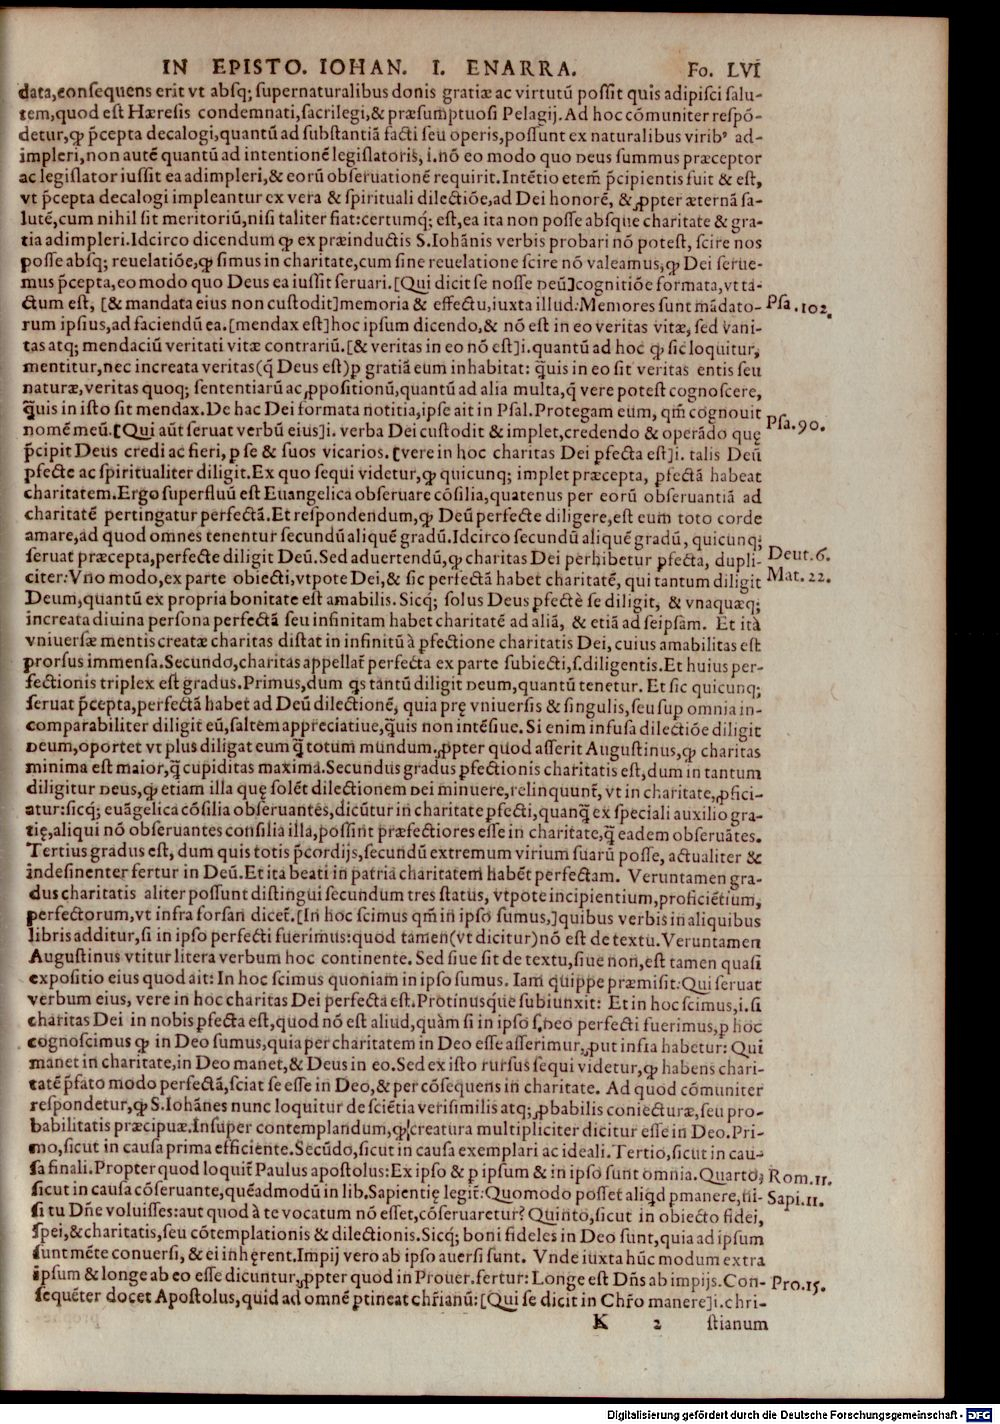 IN EPISTO. IOHAN. I. ENARRA. Fo. LVI
data, consequens erit vt absq; supernaturalibus donis gratiæ ac virtutū possit quis adipisci salu-
tem, quod est Hæresis condemnati, sacrilegi, & præsumptuosi Pelagij. Ad hoc cōmuniter respō-
detur, ꝙ p̄cepta decalogi, quantū ad substantiā facti seu operis, possunt ex naturalibus viribꝰ ad-
impleri, non autē quantū ad intentionē legislatoris, i. nō eo modo quo Deus summus præceptor
ac legislator iussit ea adimpleri, & eorū obseruationē requirit. Intētio etem̄ p̄cipientis fuit & est,
vt p̄cepta decalogi impleantur ex vera & spirituali dilectiōe, ad Dei honorē, & ꝓpter æternā sa-
lutē, cum nihil sit meritoriū, nisi taliter fiat: certumq; est, ea ita non posse absque charitate & gra-
tia adimpleri. Idcirco dicendum ꝙ ex præinductis S. Iohānis verbis probari nō potest, scire nos
posse absq; reuelatiōe, ꝙ simus in charitate, cum sine reuelatione scire nō valeamus, ꝙ Dei serue-
mus p̄cepta, eo modo quo Deus ea iussit seruari. [Qui dicit se nosse Deū] cognitiōe formata, vt ta-
ctum est, [& mandata eius non custodit] memoria & effectu, iuxta illud: Memores sunt mādato- Psa. 102.
rum ipsius, ad faciendū ea. [mendax est] hoc ipsum dicendo, & nō est in eo veritas vitæ, sed vani-
tas atq; mendaciū veritati vitæ contrariū. [& veritas in eo nō est] i. quantū ad hoc ꝙ sic loquitur,
mentitur, nec increata veritas (q̄ Deus est) ꝑ gratiā eum inhabitat: q̄uis in eo sit veritas entis seu
naturæ, veritas quoq; sententiarū ac ꝓpositionū, quantū ad alia multa, q̄ vere potest cognoscere,
q̄uis in isto sit mendax. De hac Dei formata notitia, ipse ait in Psal. Protegam eum, qm̄ cognouit Psa. 90.
nomē meū. [Qui aūt seruat verbū eius] i. verba Dei custodit & implet, credendo & operādo quę
p̄cipit Deus credi ac fieri, ꝑ se & suos vicarios. [vere in hoc charitas Dei ꝑfecta est] i. talis Deū
ꝑfecte ac spiritualiter diligit. Ex quo sequi videtur, ꝙ quicunq; implet præcepta, ꝑfectā habeat
charitatem. Ergo superfluū est Euangelica obseruare cōsilia, quatenus per eorū obseruantiā ad
charitatē pertingatur perfectā. Et respondendum, ꝙ Deū perfecte diligere, est eum toto corde
amare, ad quod omnes tenentur secundū aliquē gradū. Idcirco secundū aliquē gradū, quicunq;
seruat præcepta, perfecte diligit Deū. Sed aduertendū, ꝙ charitas Dei perhibetur ꝑfecta, dupli- Deut. 6.
citer: Vno modo, ex parte obiecti, vtpote Dei, & sic perfectā habet charitatē, qui tantum diligit Mat. 22.
Deum, quantū ex propria bonitate est amabilis. Sicq; solus Deus ꝑfectè se diligit, & vnaquæq;
increata diuina persona perfectā seu infinitam habet charitatē ad aliā, & etiā ad seipsam. Et ita
vniuersæ mentis creatæ charitas distat in infinitū à ꝑfectione charitatis Dei, cuius amabilitas est
prorsus immensa. Secundo, charitas appellat̄ perfecta ex parte subiecti, s. diligentis. Et huius per-
fectionis triplex est gradus. Primus, dum q̄s tantū diligit Deum, quantū tenetur. Et sic quicunq;
seruat p̄cepta, perfectā habet ad Deū dilectionē, quia prę vniuersis & singulis, seu sup omnia in-
comparabiliter diligit eū, saltem appreciatiue, q̄uis non intēsiue. Si enim infusa dilectiōe diligit
Deum, oportet vt plus diligat eum q̄ totum mundum. ꝓpter quod asserit Augustinus, ꝙ charitas
minima est maior, q̄ cupiditas maxima. Secundus gradus ꝑfectionis charitatis est, dum in tantum
diligitur Deus, ꝙ etiam illa quę solēt dilectionem Dei minuere, relinquunt̄, vt in charitate, ꝓfici-
atur: sicq; euāgelica cōsilia obseruantes, dicūtur in charitate ꝑfecti, quanq̄ ex speciali auxilio gra-
tię, aliqui nō obseruantes consilia illa, possint præfectiores esse in charitate, q̄ eadem obseruātes.
Tertius gradus est, dum quis totis p̄cordijs, secundū extremum virium suarū posse, actualiter &
indesinenter fertur in Deū. Et ita beati in patria charitatem habēt perfectam. Veruntamen gra-
dus charitatis aliter possunt distingui secundum tres status, vtpote incipientium, proficiētium,
perfectorum, vt infra forsan dicet̄. [In hoc scimus qm̄ in ipso sumus,] quibus verbis in aliquibus
libris additur, si in ipso perfecti fuerimus: quod tamen (vt dicitur) nō est de textu. Veruntamen
Augustinus vtitur litera verbum hoc continente. Sed siue sit de textu, siue non, est tamen quasi
expositio eius quod ait: In hoc scimus quoniam in ipso sumus. Iam quippe præmisit: Qui seruat
verbum eius, vere in hoc charitas Dei perfecta est. Protinusque subiunxit: Et in hoc scimus, i. si
charitas Dei in nobis ꝑfecta est, quod nō est aliud, quàm si in ipso s. Deo perfecti fuerimus, ꝑ hoc
cognoscimus ꝙ in Deo sumus, quia per charitatem in Deo esse asserimur, ꝓut infia habetur: Qui
manet in charitate, in Deo manet, & Deus in eo. Sed ex isto rursus sequi videtur, ꝙ habens chari-
tatē p̄fato modo perfectā, sciat se esse in Deo, & per cōsequens in charitate. Ad quod cōmuniter
respondetur, ꝙ S. Iohānes nunc loquitur de sciētia verisimilis atq; ꝓbabilis coniecturæ, seu pro-
babilitatis præcipuæ. Insuper contemplandum, ꝙ creatura multipliciter dicitur esse in Deo. Pri-
mo, sicut in causa prima efficiente. Secūdo, sicut in causa exemplari ac ideali. Tertio, sicut in cau-
sa finali. Propter quod loquit̄ Paulus apostolus: Ex ipso & ꝑ ipsum & in ipso sunt omnia. Quarto, Rom. 11.
sicut in causa cōseruante, quēadmodū in lib. Sapientię legit̄: Quomodo posset aliq̇d ꝑmanere, ni- Sapi. 11.
si tu Dn̄e voluisses: aut quod à te vocatum nō esset, cōseruaretur? Quinto, sicut in obiecto fidei,
spei, & charitatis, seu cōtemplationis & dilectionis. Sicq; boni fideles in Deo sunt, quia ad ipsum
sunt mēte conuersi, & ei inhęrent. Impij vero ab ipso auersi sunt. Vnde iuxta hūc modum extra
ipsum & longe ab eo esse dicuntur, ꝓpter quod in Prouer. fertur: Longe est Dn̄s ab impijs. Con- Pro. 15.
sequēter docet Apostolus, quid ad omnē ꝑtineat chr̄ianū: [Qui se dicit in Chr̄o manere] i. chri-
K 2 stianum
Digitalisierung gefördert durch die Deutsche Forschungsgemeinschaft - DFG